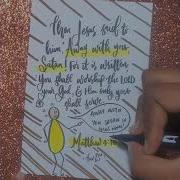 Then Jesus said to
him, Away with you,
Satan! For it is written,
You shall worship the LORD
your God, & Him only you
shall serve.
AWAY WITH
YOU SATAN IN
JESUS NAME!
Matthew 4:10